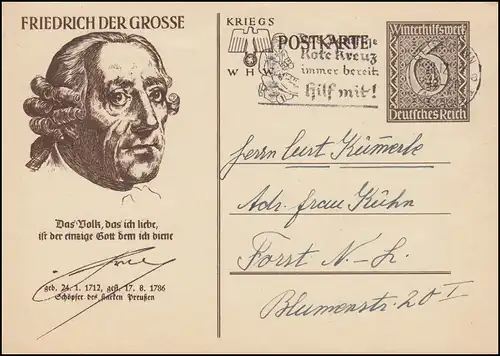 FRIEDRICH DER GROSSE
Das Volk, das ich liebe,
ist der einzige Gott dem ich diene
geb. 24. 1. 1712, gest. 17. 8. 1786
Schöpfer des starken Preußen
KRIEGS
WHW
POSTKARTE
Rote Kreuz
immer bereit
Hilf mit!
Winterhilfswerk
6
Deutsches Reich
Herrn Curt Kümmerle
Adr. Frau Kühn
Forst N-L.
Blumenstr. 20 I